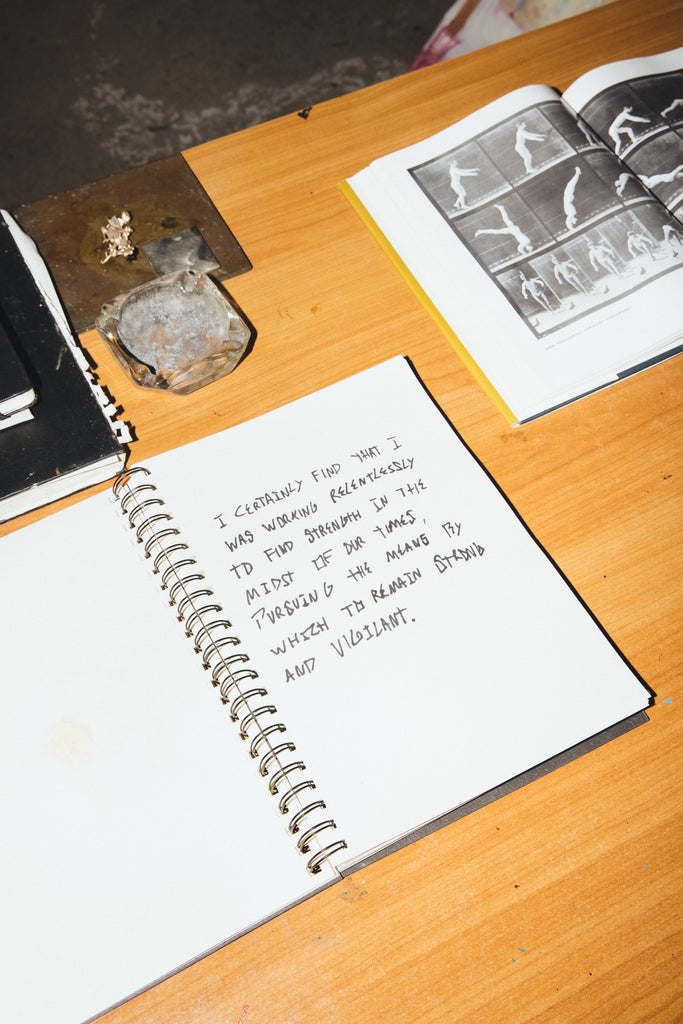 I CERTAINLY FIND THAT I
WAS WORKING RELENTLESSLY
TO FIND STRENGTH IN THE
MIDST OF OUR TIMES,
PURSUING THE MEANS BY
WHICH TO REMAIN STRONG
AND VIGILANT.